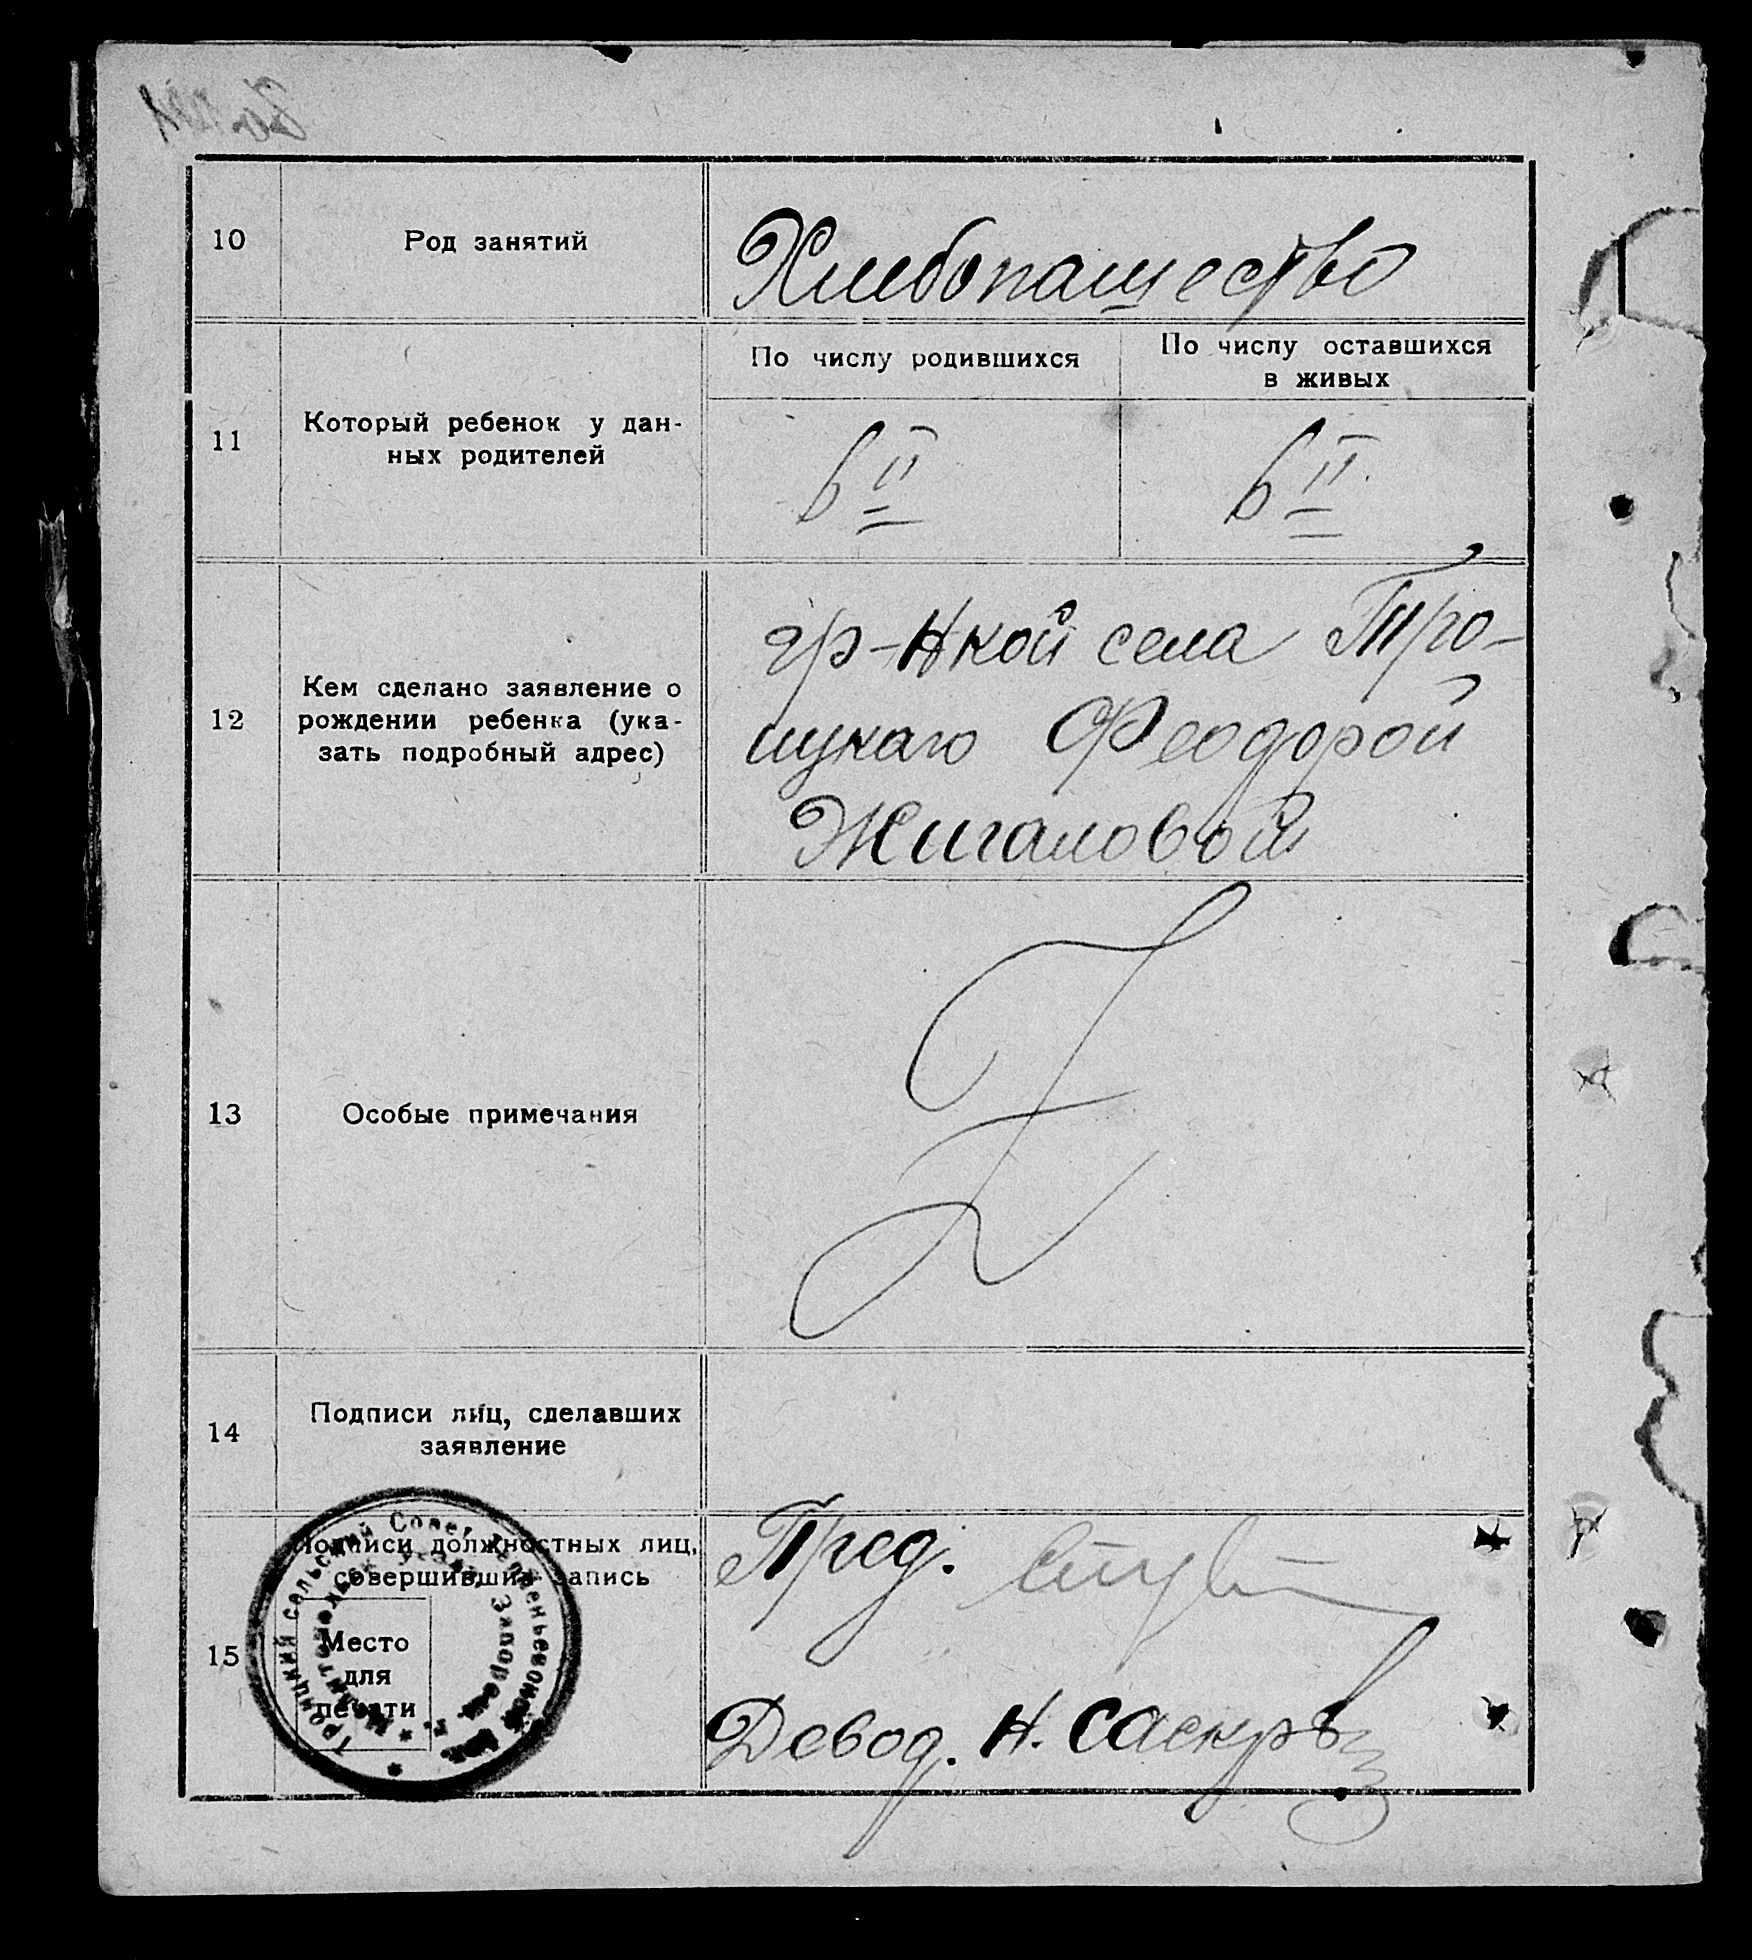 10
Род занятий
Хлибопащество
11
Который ребенок у дан-
ных родителей
По числу родившихся
По числу оставшихся
в живых
6й
6й
12
Кем сделано заявление о
рождении ребенка (ука-
зать подробный адрес)
гр-Нкой села Тро-
ицкаго Феодорой
Жигаловой
13
Особые примечания
14
Подписи лиц, сделавших
заявление
15
Подписи должностных лиц,
совершивших запись
Место
для
печати
Троицкий сельский Совет
Пред.
Девод. Н.